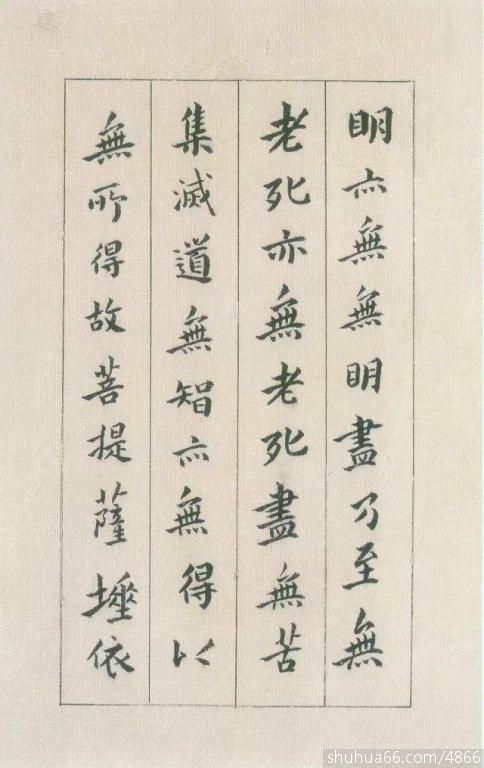 明亦無無明盡乃至無
老死亦無老死盡無苦
集滅道無智亦無得以
無所得故菩提薩埵依
shuhua66.com/4866